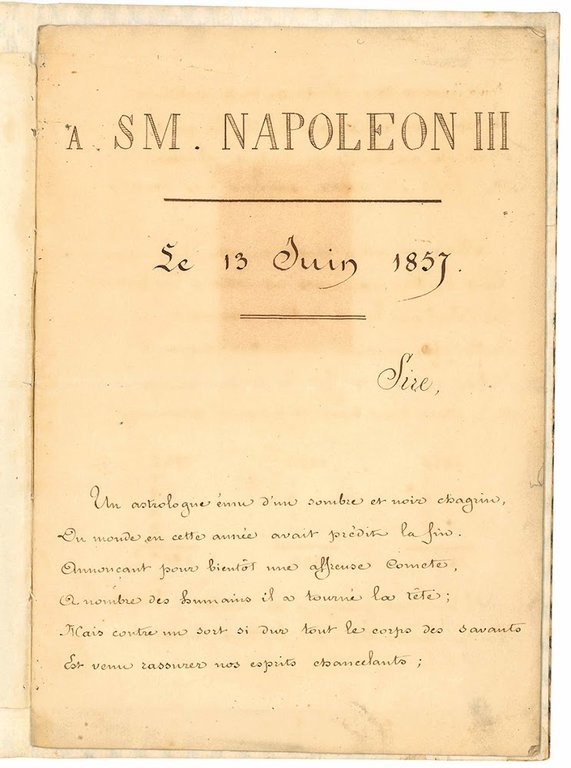 A. SM. NAPOLEON III
Le 13 Juin 1857.
Sire,
Un astrologue ému d'un sombre et noir chagrin,
Du monde en cette année avait prédit la fin.
Annonçant pour bientôt une affreuse Comète,
A nombre des humains il a tourné la tête;
Mais contre un sort si dur tout le corps des savants
Est venu rassurer nos esprits chancelants;